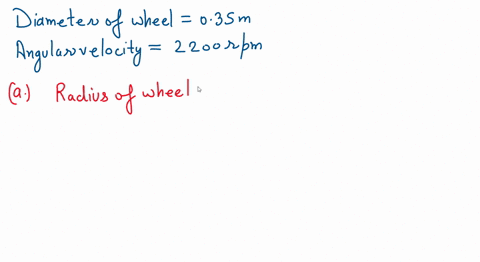 Diameter of wheel = 0.35 m
Angular velocity = 2200 rpm
(a.) Radius of wheel